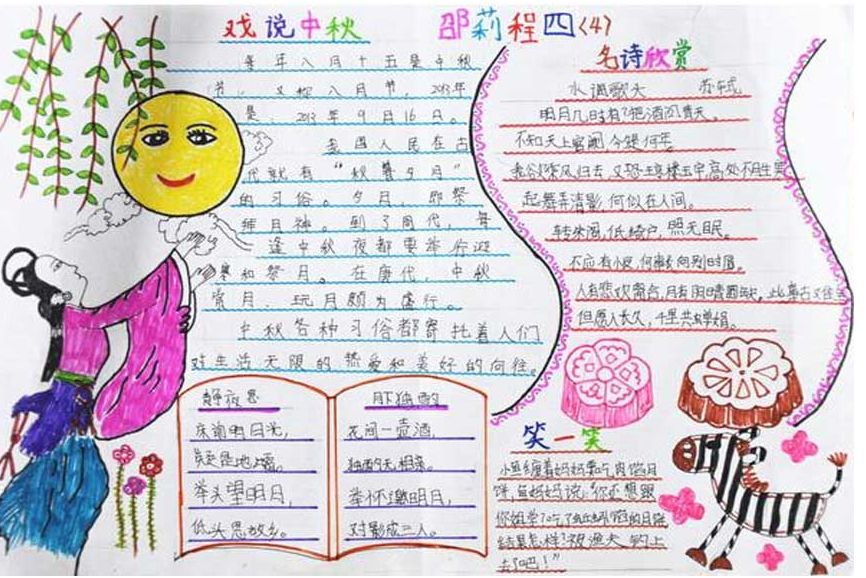 戏说中秋
邵莉程四(4)
每年八月十五是中秋
节，又称八月节，2013年
是 2013年9月16日。
我国人民在古
代就有“秋暮夕月”
的习俗。夕月，即祭
拜月神。到了周代，每
逢中秋夜都要举行迎
寒和祭月。在唐代，中秋
赏月、玩月颇为盛行。
中秋各种习俗都寄托着人们
对生活无限的热爱和美好的向往。
静夜思
床前明月光，
疑是地上霜。
举头望明月，
低头思故乡。
月下独酌
花间一壶酒，
独酌无相亲。
举杯邀明月，
对影成三人。
名诗欣赏
水调歌头 苏轼
明月几时有？把酒问青天。
不知天上宫阙 今夕是何年
我欲乘风归去 又恐琼楼玉宇 高处不胜寒
起舞弄清影 何似在人间。
转朱阁，低绮户，照无眠。
不应有恨，何事长向别时圆。
人有悲欢离合，月有阴晴圆缺，此事古难全
但愿人长久，千里共婵娟。
笑一笑
小鱼缠着妈妈要吃肉馅月
饼，鱼妈妈说：“你还想跟
你姐学？吃了蚯蚓馅的月饼
结果怎样？被渔夫钓上
去了吧！”